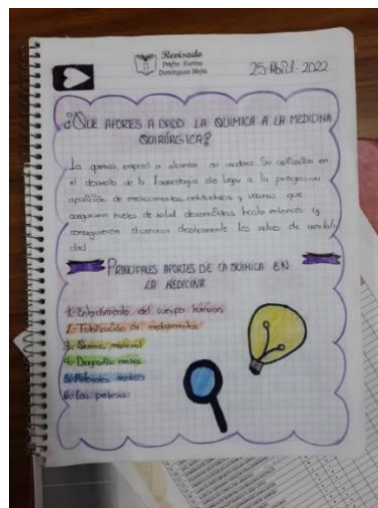 Revisado
Profra. Karina
Domínguez Mejía
25-Abril-2022
¿QUE APORTES A DADO LA QUIMICA A LA MEDICINA
QUIRÚRGICA?
La quimica empezó a alcanzar su madurez. Su aplicación en
el desarrollo de la farmacología dio lugar a la progresiva
aparición de medicamentos, antibióticos y vacunas que
aseguraron niveles de salud desconocidos hasta entonces y
consiguieron disminuir drásticamente los índices de mortali
dad.
PRINCIPALES APORTES DE LA QUIMICA EN
LA MEDICINA
1- Entendimiento del cuerpo humano
2- Fabricación de medicamentos
3- Química medicinal
4- Diagnostico medico
5- Materiales medicos
6- Las protesis